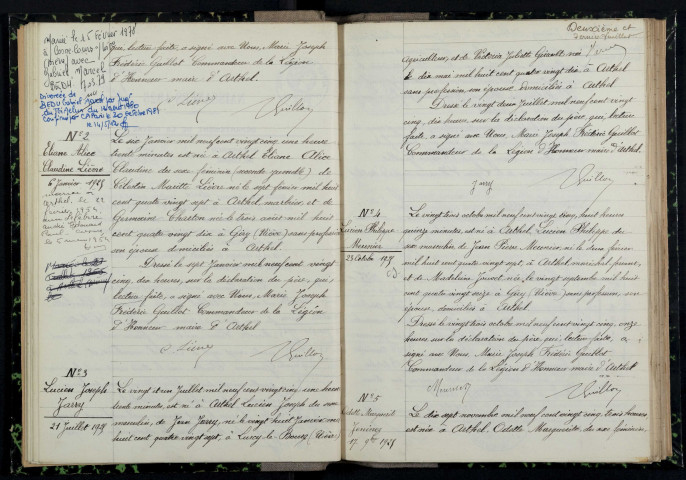 Marié le 15 Février 1978
avec
Divorcée de
que lecture faite, a signé avec Nous, Marie Joseph
Frédéric Guillot Commandeur de la Légion
d'Honneur maire d'Asthel.
Guillot
N° 2
Eliane Alice
Claudine Lièvre
6 Janvier 1925
Le six Janvier mil neuf cent vingt cinq une heure
trente minutes est née à Asthel Eliane Alice
Claudine du sexe féminin (seconde jumelle) de
Célestin Mariette Lièvre né le sept février mil huit
cent quatre vingt sept à Asthel marbrier et de
Germaine Charlon née le trois août mil huit
cent quatre vingt dix à Giry (Nièvre) sans profession
son épouse domiciliés à Asthel.
Dressé le sept Janvier mil neuf cent vingt
cinq, dix heures, sur la déclaration du père, qui,
lecture faite, a signé avec Nous, Marie Joseph
Frédéric Guillot Commandeur de la Légion
d'Honneur maire d'Asthel
Guillot
N° 3
Lucien Joseph
Jarry
21 Juillet 1925
Le vingt et un Juillet mil neuf cent vingt cinq une heure
trente minutes, est né à Asthel Lucien Joseph du sexe
masculin, de Jean Jarry, né le vingt huit Janvier mil
huit cent quatre vingt sept, à Lurcy-le-Bourg (Nièvre)
Deuxième et
dernier feuillet
agriculteur, et de Victoria Juliette Girault, née
le dix mai mil huit cent quatre vingt dix à Asthel
sans profession, son épouse domiciliés à Asthel
Dressé le vingt deux Juillet mil neuf cent vingt
cinq, dix heures sur la déclaration du père, qui, lecture
faite, a signé avec Nous, Marie Joseph Frédéric Guillot
Commandeur de la Légion d'Honneur maire d'Asthel.
Jarry
Guillot
N° 4
Lucien Philippe
Meunier
23 Octobre 1925
Le vingt trois octobre mil neuf cent vingt cinq, huit heures
quinze minutes, est né à Asthel, Lucien Philippe du
sexe masculin de Jean Pierre Meunier né le deux février
mil huit cent quatre vingt sept à Asthel maréchal ferrant,
et de Madeleine Jouvet née le vingt septembre mil huit
cent quatre vingt onze à Giry (Nièvre) sans profession, son
épouse, domiciliés à Asthel.
Dressé le vingt trois octobre mil neuf cent vingt cinq, onze
heures sur la déclaration du père, qui, lecture faite, a
signé avec Nous, Marie Joseph Frédéric Guillot
Commandeur de la Légion d'Honneur maire d'Asthel
Meunier
Guillot
N° 5
Odette Marguerite
17 9bre 1925
Le dix sept novembre mil neuf cent vingt cinq, trois heures
est née à Asthel, Odette Marguerite, du sexe féminin,